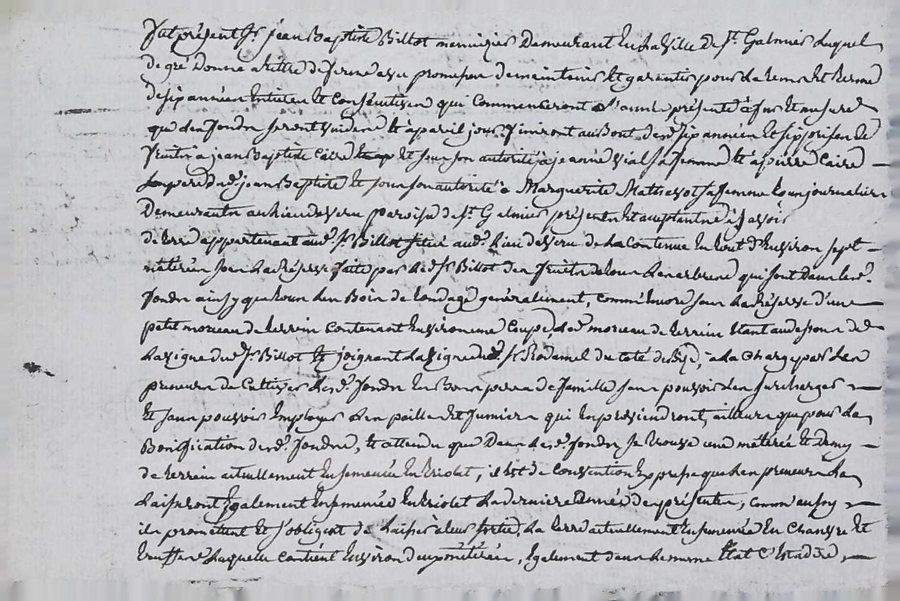 fut présent Sr. jean Baptiste Billot menuizier Demeurant en la Ville de St. Galmier Lequel
de gré Donne a titre de ferme avec promesse de maintenir et garantir pour le tems et terme
de six années Entieres et Consécutives qui Commenceront
que les fondre seront vuidere et a pareil jour finiront au Bout desd. six années et six prises de
fruits a jean Baptiste Caire et sous son autorité à jeanne vial sa femme et a pierre Caire
Son pere Dud. jean Baptiste et sous son autorité à Marguerite Mathevot sa femme tous journaliers
Demeurants au lieu de veru paroisse de St. Galmier présents et acceptants à Savoir
de terre appartenant aud. Sr. Billot situé aud. lieu de veru de la Contenue en tout d'Environ sept
meterées sous la Réserve faite par led. Sr. Billot des fruits de tous les arbres qui sont dans lesd.
fondre ainsy que tous les Bois de tondage généralement, comme Encore sous la Réserve d'une
petit morceau de terrein contenant Environ une Coupe, Led. morceau de terrein Etant au dessous de
La vigne dud. Sr. Billot et joignant la vigne de Sr. Rodamel du coté de Bize, a la Charge par les
preneurs de Cultiver lesd. fondre en Bons peres de famille sans pouvoir les surcharger
Et sans pouvoir Employer les pailles et fumiers qui En proviendront, ailleurs que pour la
Bonification desd. fondre, et attendu que Dans lesd. fondre se trouve une méterée et Demy
de terrein actuellement Ensemencée en triolet, il est de Convention Expresse que les preneurs la
Laisseront également Ensemencée en triolet la derniere année des présentes, comm'aussy
ils promettent et s'obligent de laisser a leur sortie, la terre actuellement Ensemencée En Chanvre et
Laquelle contient Environ deux meterées, également dans le meme Etat